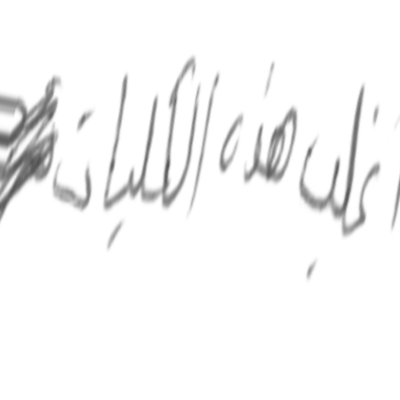 اغلب هذه الكليات